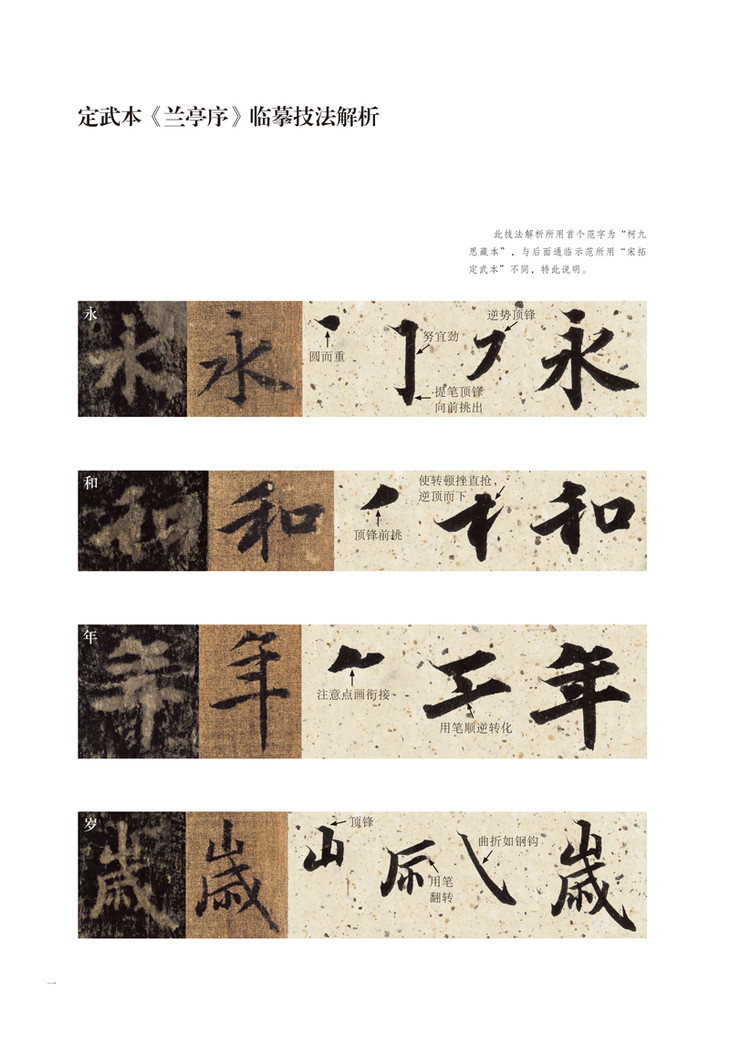 定武本《兰亭序》临摹技法解析
此技法解析所用首个范字为“柯九
思藏本”，与后面通临示范所用“宋拓
定武本”不同，特此说明。
永
永
永
圆而重
努宜劲
提笔顶锋
向前挑出
逆势顶锋
永
和
和
和
顶锋前挑
使转顿挫直抢，
逆顶而下
和
年
年
年
注意点画衔接
用笔顺逆转化
年
岁
歲
歲
顶锋
用笔
翻转
曲折如钢钩
歲
一